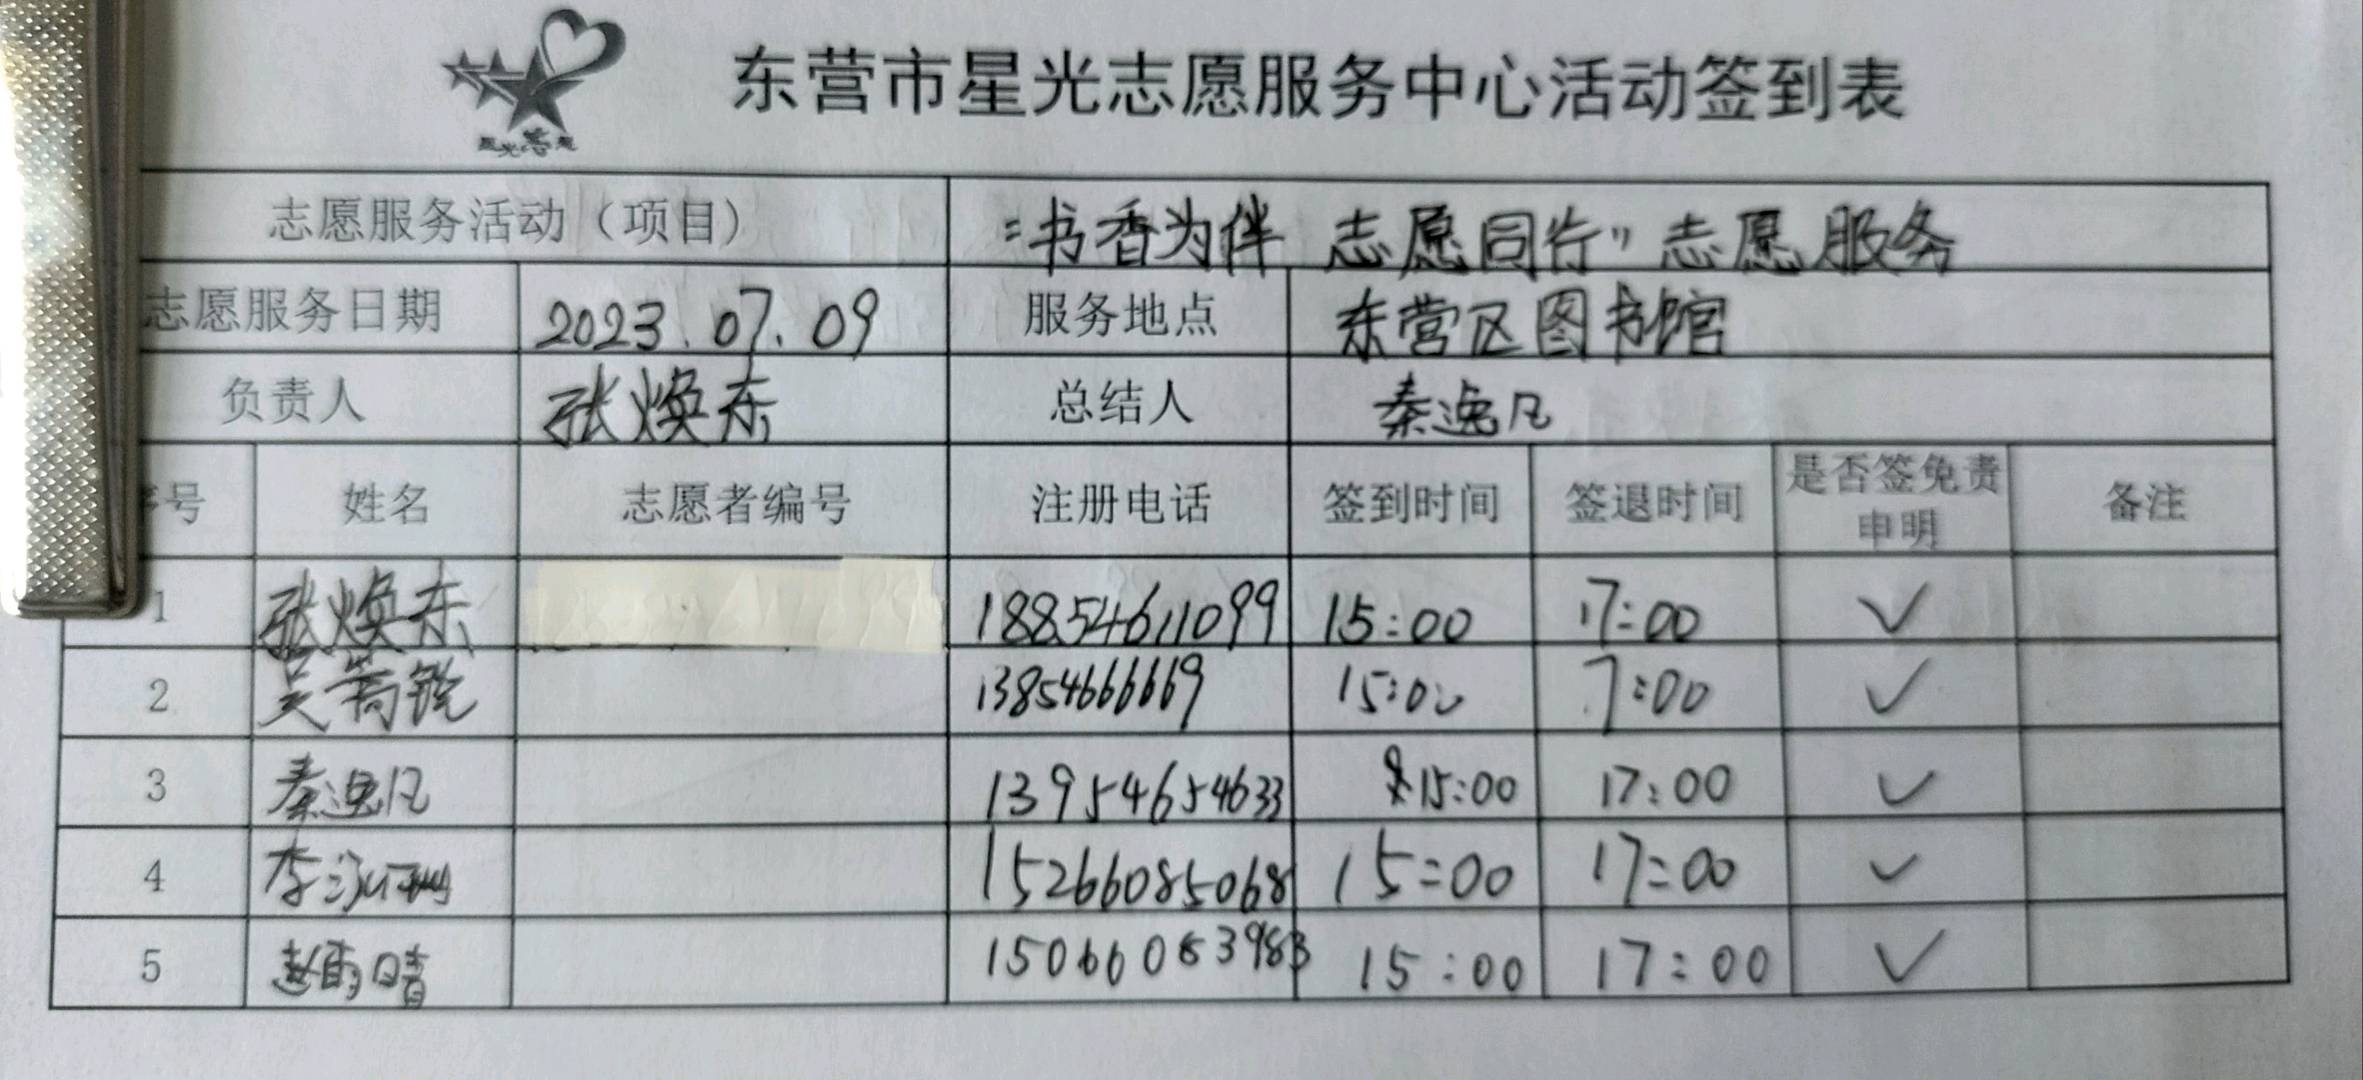 星光志愿
东营市星光志愿服务中心活动签到表
志愿服务活动（项目） "书香为伴 志愿同行"志愿服务
志愿服务日期 2023.07.09 服务地点 东营区图书馆
负责人 张焕东 总结人 秦逸凡
序号 姓名 志愿者编号 注册电话 签到时间 签退时间 是否签免责申明 备注
1 张焕东 18854611099 15:00 17:00 ✓
2 吴 13854666669 15:00 7:00 ✓
3 秦逸凡 13954654633 15:00 17:00 ✓
4 李 15266085068 15:00 17:00 ✓
5 赵雨晴 15:00 17:00 ✓